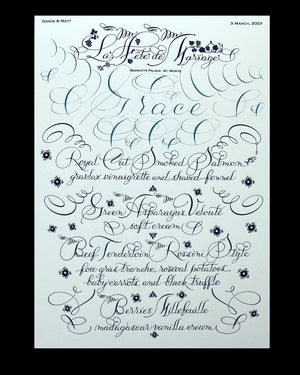 GRACE & MATT
3 MARCH, 2023
La Fête de Mariage
BADRUTTS PALACE - ST. MORITZ
Grace
Royal Cut Smoked Salmon
gravlax vinaigrette and shaved fennel
Green Asparagus Velouté
soft cream
Beef Tenderloin Rossini Style
foie gras tranche, roseval potatoes
baby carrots and black truffle
Berries Millefeuille
madagascar vanilla cream